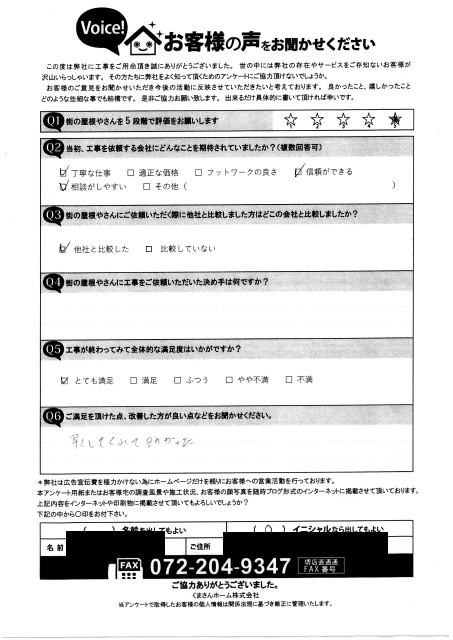 Voice!
お客様の声をお聞かせください
この度は弊社に工事をご用命頂き誠にありがとうございました。世の中には弊社の存在やサービスをご存知ないお客様が
沢山いらっしゃいます。その方たちに弊社をよく知って頂くためのアンケートにご協力頂けないでしょうか。
お客様のご意見をお聞かせいただき今後の活動に反映させていただきたいと考えております。良かったこと、嬉しかったこと
どのような些細な事でも結構です。是非ご協力お願い致します。出来るだけ具体的に書いて頂ければ幸いです。
Q1 街の屋根やさんを5段階で評価をお願いします ☆1 ☆2 ☆3 ☆4 ★5
Q2 当初、工事を依頼する会社にどんなことを期待されていましたか?(複数回答可)
☑ 丁寧な仕事 □ 適正な価格 □ フットワークの良さ ☑ 信頼ができる
☑ 相談がしやすい □ その他( )
Q3 街の屋根やさんにご依頼いただく際に他社と比較しました方はどこの会社と比較しましたか?
☑ 他社と比較した □ 比較していない
Q4 街の屋根やさんに工事をご依頼いただいた決め手は何ですか?
Q5 工事が終わってみて全体的な満足度はいかがですか?
☑ とても満足 □ 満足 □ ふつう □ やや不満 □ 不満
Q6 ご満足を頂けた点、改善した方が良い点などをお聞かせください。
早くしてくれて助かった
*弊社は広告宣伝費を極力かけない為にホームページだけを頼りにお客様への営業活動を行っております。
本アンケート用紙またはお客様宅の調査風景や施工状況、お客様の顔写真を随時ブログ形式のインターネットに掲載させて頂いております。
上記内容をインターネットや印刷物に掲載させて頂いてもよろしいでしょうか?
下記の中から○印をお付下さい。
( ) 名前を出してもよい ( ○ ) イニシャルなら出してもよい
名前 ご住所
FAX 072-204-9347 堺店直通 FAX番号
ご協力ありがとうございました。
くまさんホーム株式会社
当アンケートで取得したお客様の個人情報は関係法規に基づき厳正に管理いたします。